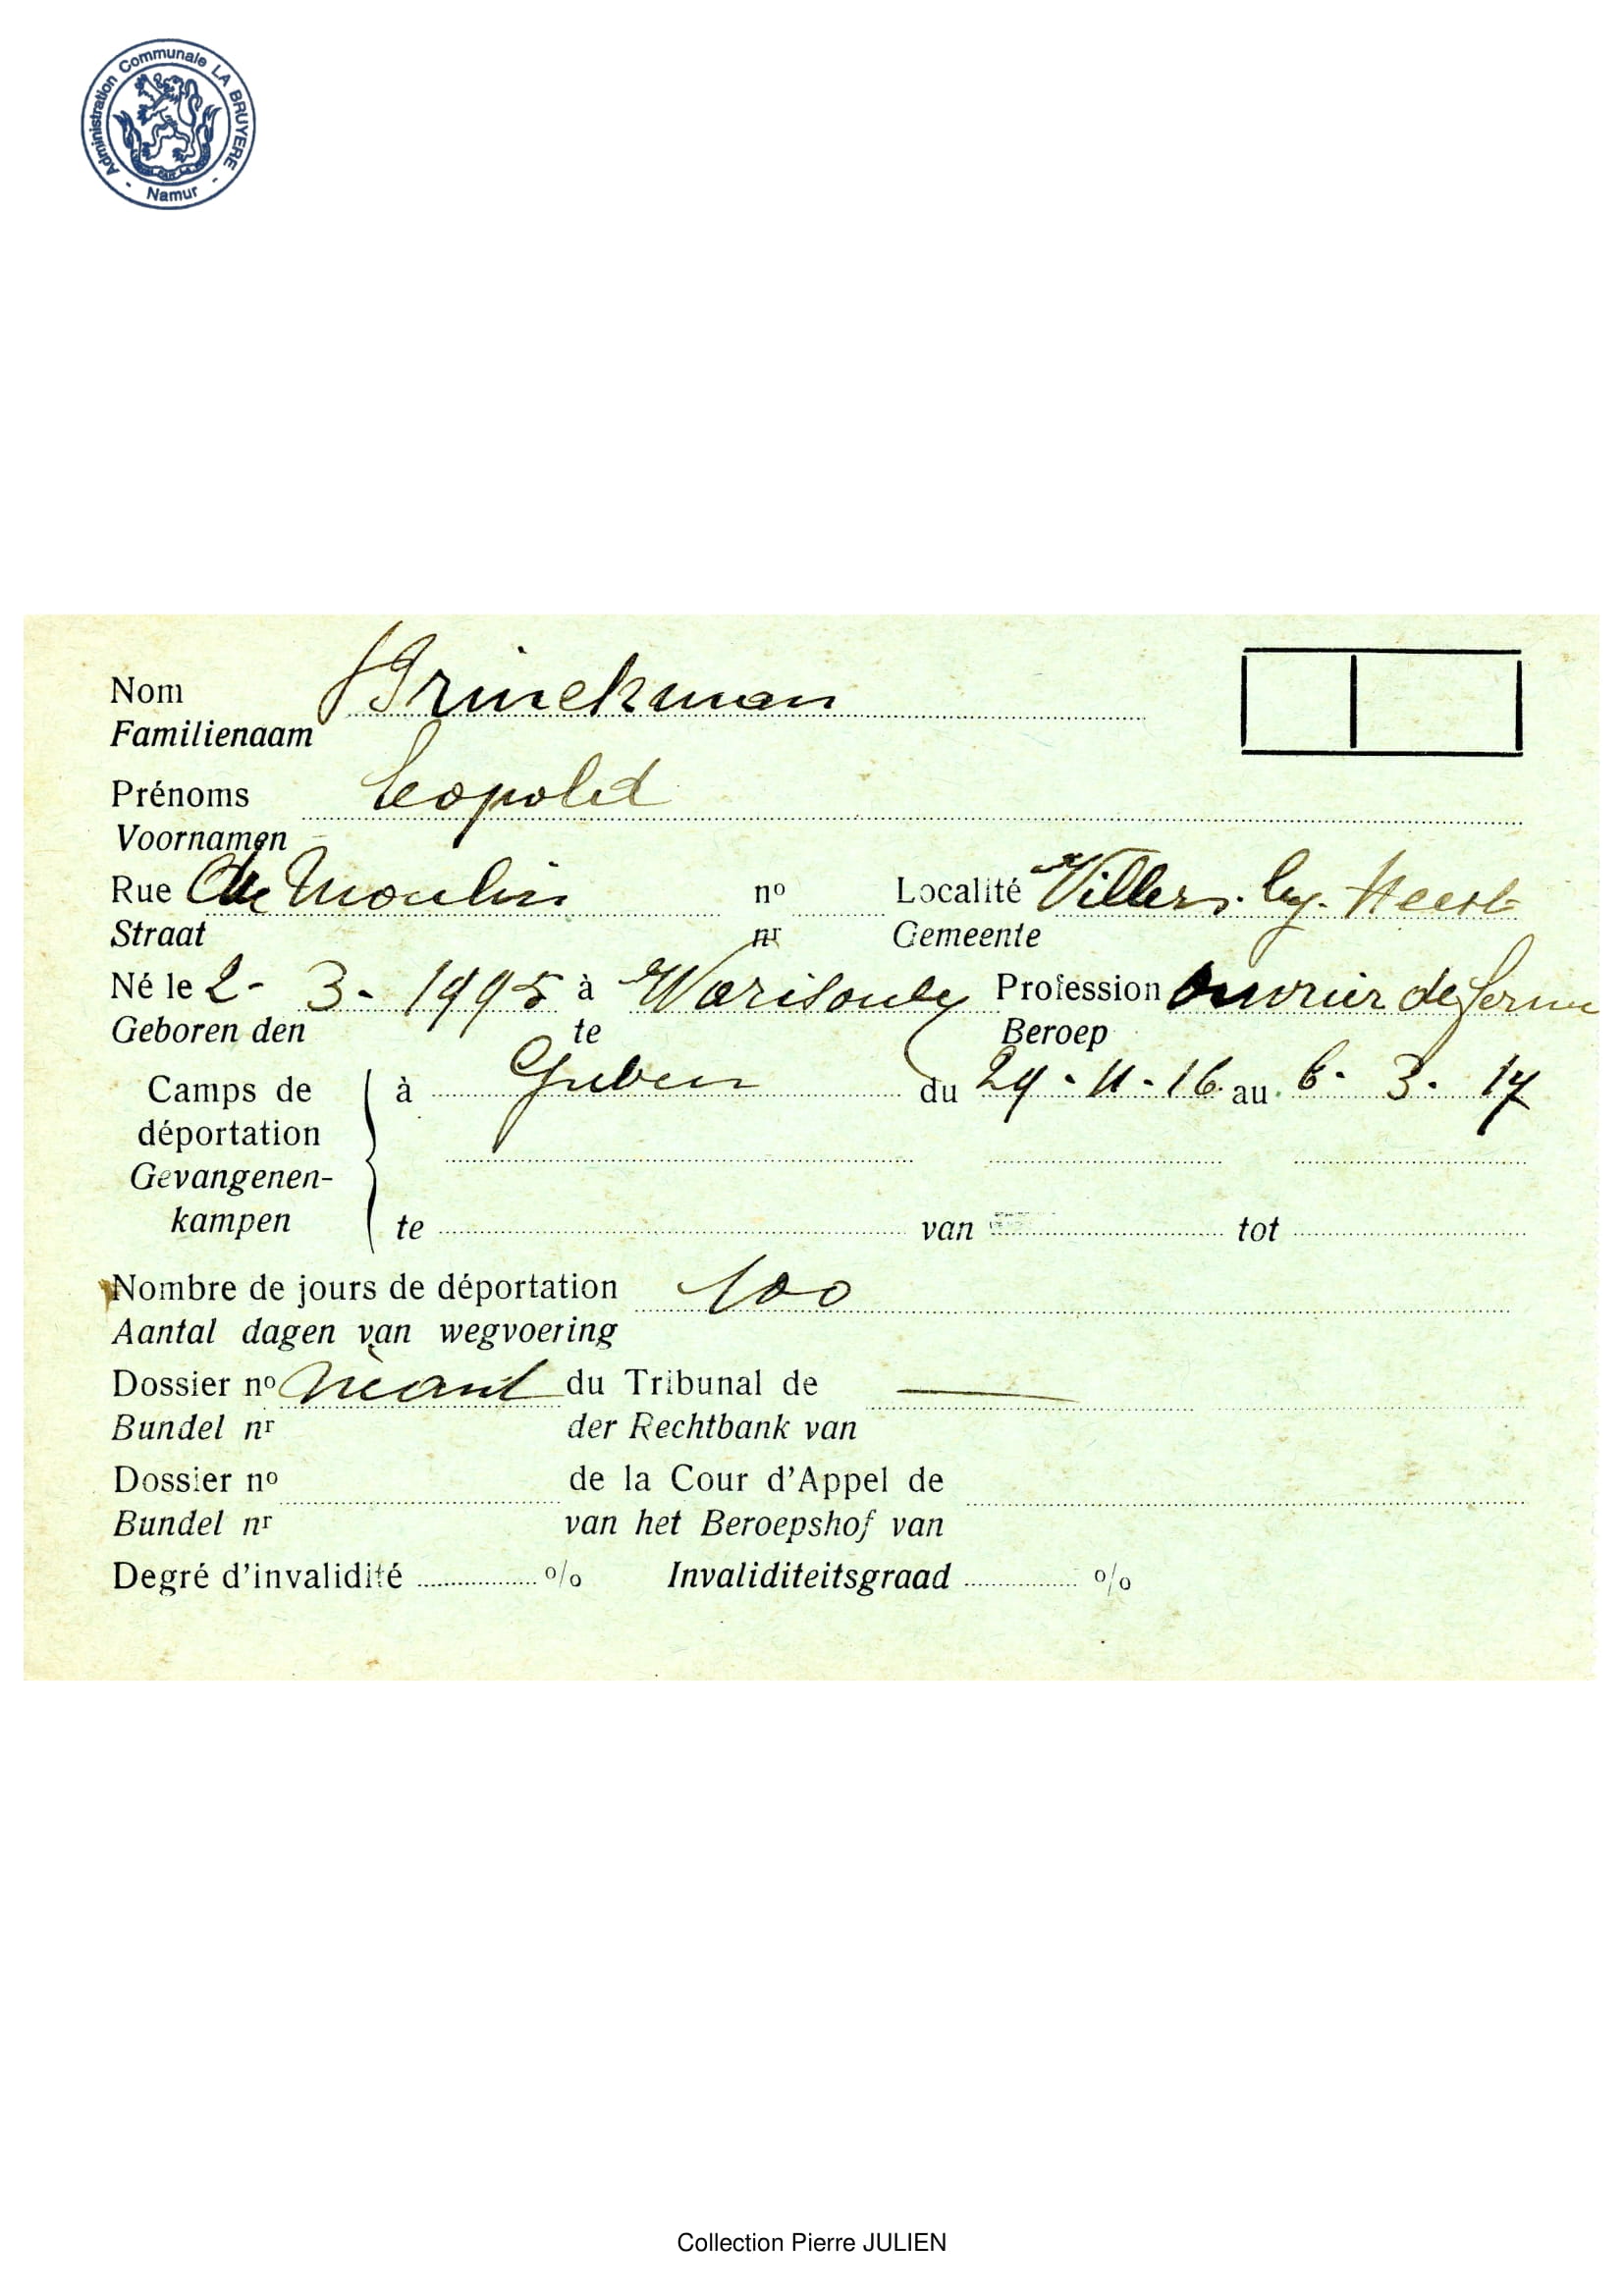 Administration Communale LA BRUYERE - Namur -
Nom Brinckman
Familienaam
Prénoms Léopold
Voornamen
Rue du Moulin nº Localité Villers. lez. Heest
Straat nr Gemeente
Né le 2- 3- 1995 à Warisoulx Profession Ouvrier de ferme
Geboren den te Beroep
Camps de à Guben du 29 - 11 - 16 au 6 - 3 - 17
déportation
Gevangenen-
kampen te van tot
Nombre de jours de déportation 100
Aantal dagen van wegvoering
Dossier nº Néant du Tribunal de
Bundel nr der Rechtbank van
Dossier nº de la Cour d'Appel de
Bundel nr van het Beroepshof van
Degré d'invalidité % Invaliditeitsgraad %
Collection Pierre JULIEN